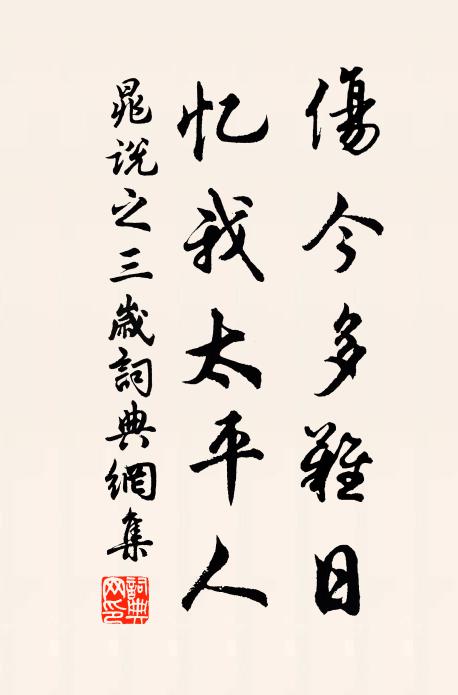 傷今多難日
忆我太平人
晁説之三歲詞典網集
詞典網印